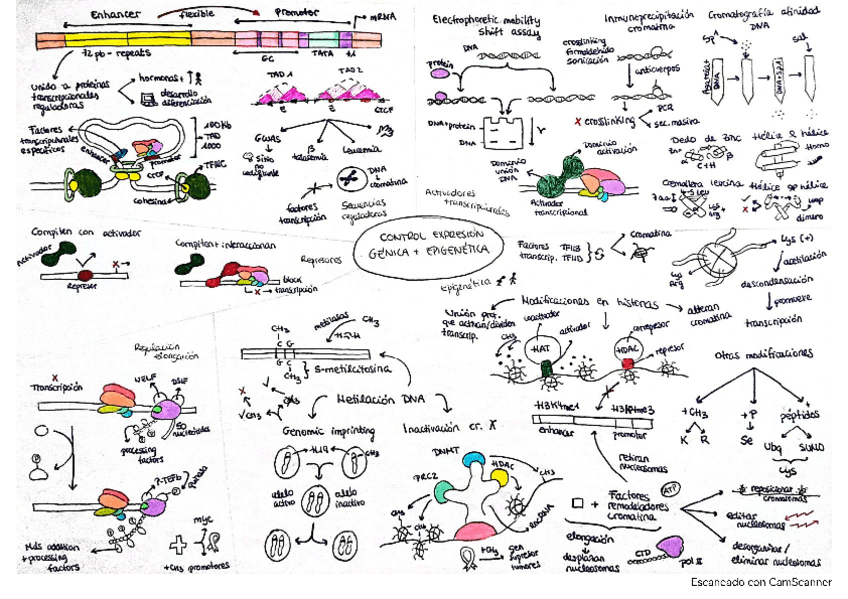 Enhancer
flexible
Promotor
mRNA
72 pb - repeats
GC
TATA
+1
Unido a proteínas
transcripcionales
reguladoras
hormonas
desarrollo
diferenciación
TAD 1
TAD 2
CTCF
Factores
transcripcionales
específicos
enhancer
promotor
CTCF
cohesinas
100 Kb
TAD
1000
TFIIC
GWAS
β
talasemia
Leucemia
DNA
cromatina
factores
transcripción
Secuencias
reguladoras
Electrophoretic mobility
shift assay
DNA
Proteína
DNA+proteín
DNA
Inmunoprecipitación
cromatina
crosslinking
formaldehído
sonicación
anticuerpos
x crosslinking
PCR
sec. masiva
Cromatografía afinidad
DNA
sal
Dominio
unión
DNA
Dominio
activación
Activador
transcripcional
Activadores
transcripcionales
Dedo de zinc
C + H
Hélice g hélice
Homo
Cremallera leucina
Hélice gp hélice
dímero
Compiten con activador
Activador
Represor
Compiten + interaccionan
Represores
block
transcripción
CONTROL EXPRESIÓN
GÉNICA + EPIGENÉTICA
Factores
transcrip.
TFIIB
TFIID
cromatina
Lys
Arg
Lys (+)
acetilación
descondensación
promueve
transcripción
Epigenética
Modificaciones en histonas
alteran
cromatina
Unión prot.
que activan/dividen
transcrip.
coactivador
activador
HAT
CH3
corepresor
HDAC
represor
H3K4me1
H3K4me3
enhancer
promotor
retiran
nucleosomas
Otras modificaciones
+CH3
K R
+P
Se
péptidos
Ubq
SUMO
Lys
Regulación
elongación
x
Transcripción
NELF
DSIF
50
nucleótidos
processing
factors
P-TEFb
Mds addition
+processing
factors
myc
+CH3 promotores
CH3
metilasas
CH3
C G
G C
CH3
5-metilcitosina
Metilación DNA
Genomic imprinting
H19
CH3
alelo
activo
alelo
inactivo
Inactivación cr. X
DNMT
HDAC
PRC2
CH3
CH3
CH3
lncRNA
+CH3
gen
supresor
tumores
+ Factores
remodeladores
cromatina
ATP
elongación
desplazan
nucleosomas
CTD
pol II
reposicionar
cromosomas
editar
nucleosomas
desorganizar /
eliminar nucleosomas
Escaneado con CamScanner